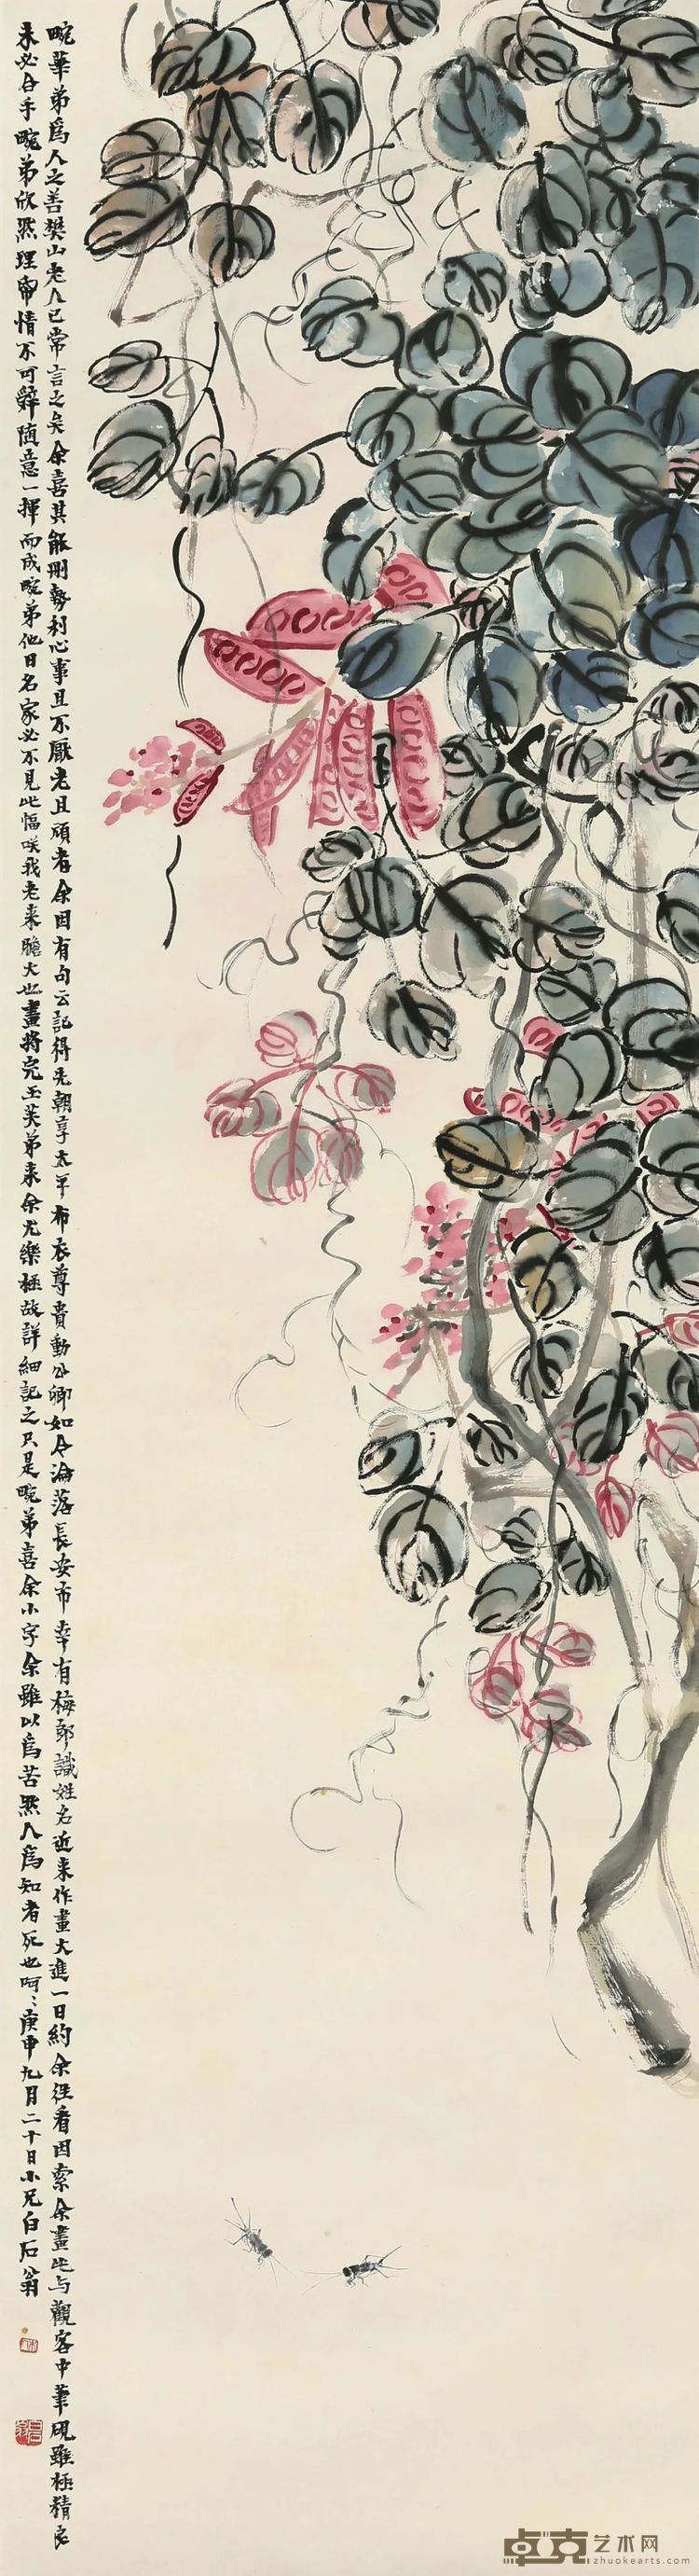 畹華弟為人之善樊山老人已常言之矣余喜其能刪勢利心事且不厭老且頑者余因有句云記得先朝享太平布衣尊貴動公卿如今淪落長安市幸有梅郎識姓名近來作畫大進一日約余往看因索余畫此与觀客中筆硯雖極精良
未必合手畹弟欣然理帋情不可辭随意一揮而成畹弟他日名家必不見此幅咲我老来膽大也畫将完玉芙弟来余尤樂極故詳細記之只是畹弟喜余小字余雖以為苦然人為知者死也呵〻庚申九月二十日小兄白石翁
卓克艺术网
zhuokearts.com